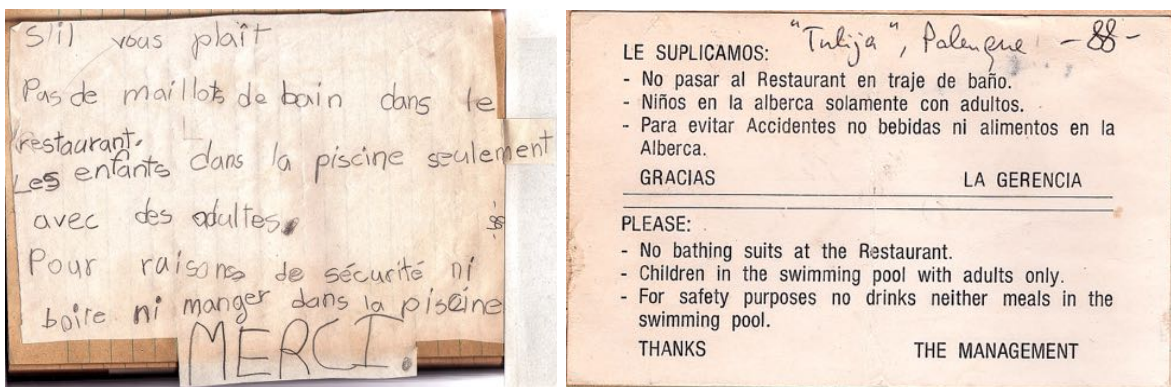 S'il vous plaît
Pas de maillots de bain dans le
restaurant.
Les enfants dans la piscine seulement
avec des adultes.
Pour raisons de sécurité ni
boire ni manger dans la piscine
MERCI.
"Tulija", Palenque -88-
LE SUPLICAMOS:
- No pasar al Restaurant en traje de baño.
- Niños en la alberca solamente con adultos.
- Para evitar Accidentes no bebidas ni alimentos en la
Alberca.
GRACIAS LA GERENCIA
PLEASE:
- No bathing suits at the Restaurant.
- Children in the swimming pool with adults only.
- For safety purposes no drinks neither meals in the
swimming pool.
THANKS THE MANAGEMENT